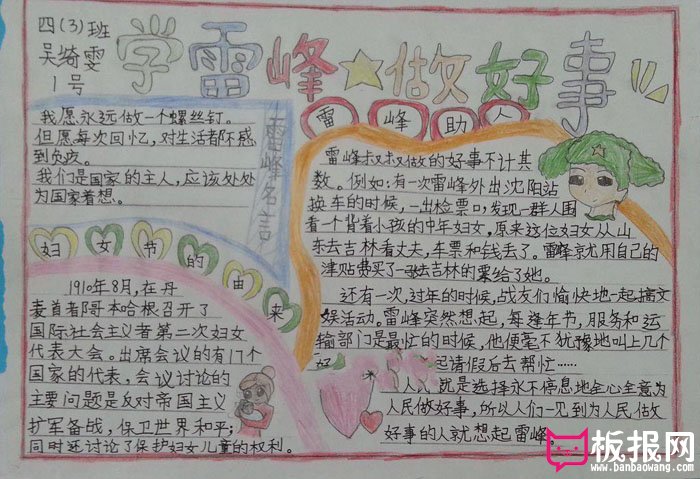 四(3)班
吴绮雯
1号
学雷峰☆做好事
雷峰助人
雷峰名言
我愿永远做一个螺丝钉。
但愿每次回忆,对生活都不感
到负疚。
我们是国家的主人,应该处处
为国家着想。
妇女节的由来
1910年8月,在丹
麦首者哥本哈根召开了
国际社会主义者第二次妇女
代表大会。出席会议的有17个
国家的代表,会议讨论的
主要问题是反对帝国主义
扩军备战,保卫世界和平;
同时还讨论了保护妇女儿童的权利。
雷峰叔叔做的好事不计其
数。例如:有一次雷峰外出沈阳站
换车的时候,一出检票口,发现一群人围
看一个背着小孩的中年妇女,原来这位妇女从山
东去吉林看丈夫,车票和钱丢了。雷峰就用自己的
津贴费买了一张去吉林的票给了她。
还有一次,过年的时候,战友们愉快地一起搞文
娱活动。雷峰突然想起,每逢年节,服务和运
输部门是最忙的时候,他便毫不犹豫地叫上几个
好
起请假后去帮忙……
人人就是选择永不停息地全心全意为
人民做好事,所以人们一见到为人民做
好事的人就想起雷峰。
板报网
www.banbaowang.com